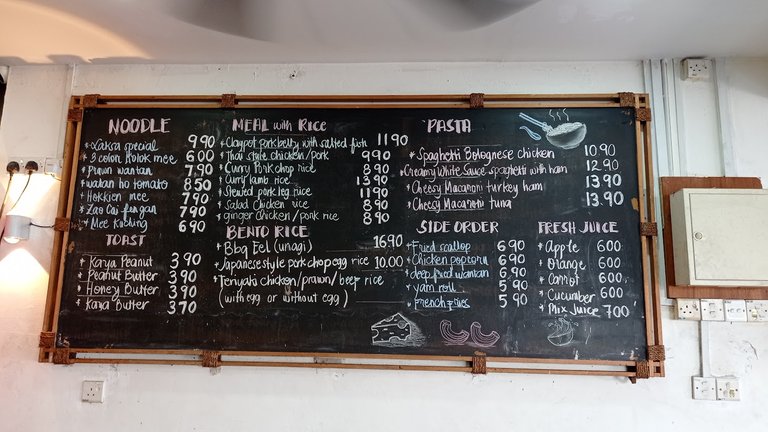 NOODLE
* Laksa special 9 90
* 3 colon Kolok mee 6 00
* Prawn wantan 7.90
* watan ho tomato 8 50
* Hokkien mee 7 90
* Zao Cai fungan 7 90
* Mee Kuching 6 90
TOAST
* Kaya Peanut 3 90
* Peanut Butter 3 90
* Honey Butter 3 90
* Kaya Butter 3 70
MEAL with RICE
* Claypot porkbelly with salted fish 11 90
* Thai style chicken/pork 9 90
* Curry Pork chop rice 8 90
* Curry lamb rice 13 90
* Stewed pork leg rice 11 90
* Salad Chicken rice 8 90
* ginger Chicken/pork rice 8 90
BENTO RICE
* Bbq Eel (unagi) 16 90
* Japanese style pork chop egg rice 10.00
* Teriyaki chicken/prawn/beef rice
(with egg or without egg)
PASTA
* Spaghetti Bolognese chicken 10.90
* Creamy White Sauce spaghetti with ham 12.90
* Cheesy Macaroni turkey ham 13.90
* Cheesy Macaroni tuna 13.90
SIDE ORDER
* Fried scallop 6 90
* Chicken popcorn 6 90
* deep fried wantan 6 90
* yam roll 5 90
* french fries 5 90
FRESH JUICE
* Apple 6 00
* Orange 6 00
* Carrot 6 00
* Cucumber 6 00
* Mix Juice 7 00